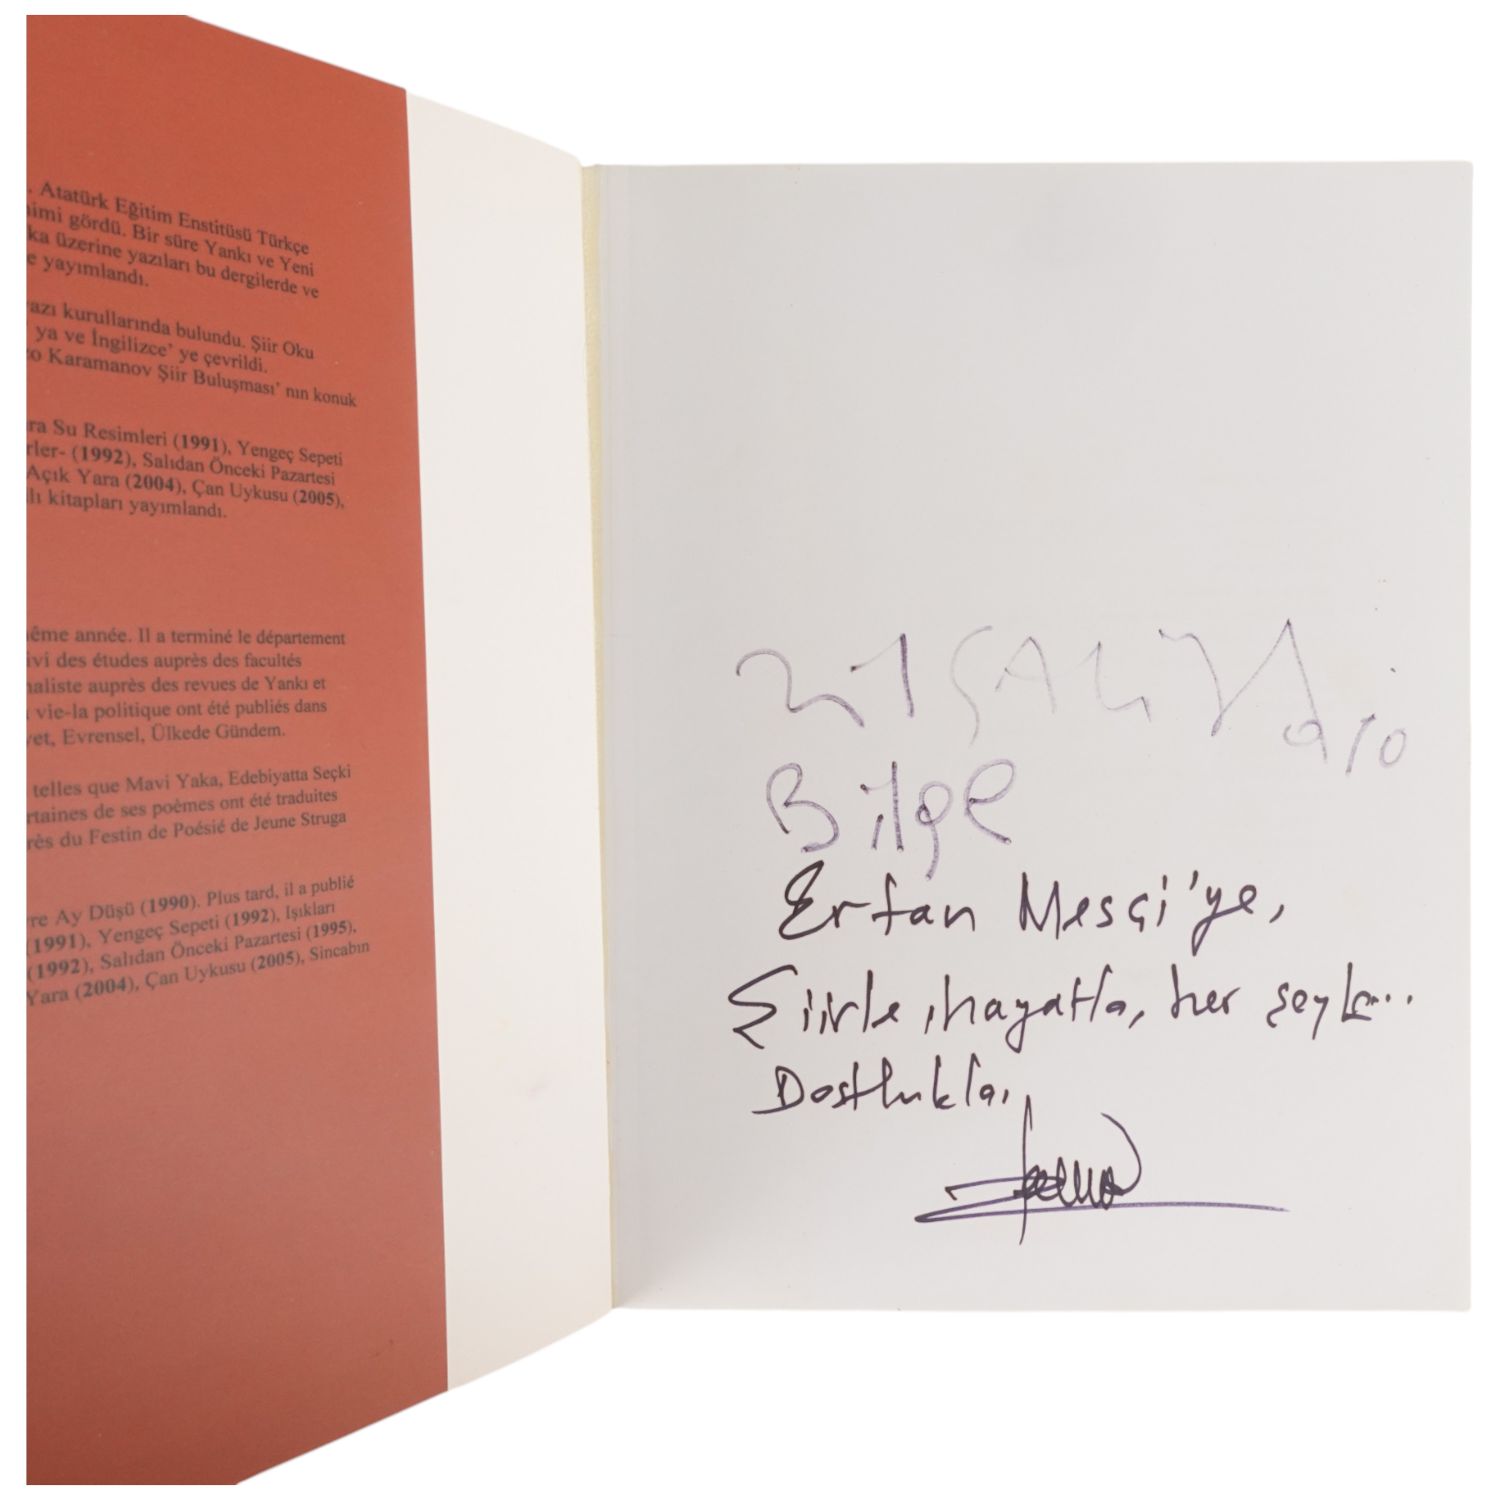 . Atatürk Eğitim Enstitüsü Türkçe
imi gördü. Bir süre Yankı ve Yeni
ka üzerine yazıları bu dergilerde ve
e yayımlandı.
azı kurullarında bulundu. Şiir Oku
ya ve İngilizce' ye çevrildi.
o Karamanov Şiir Buluşması' nın konuk
ra Su Resimleri (1991), Yengeç Sepeti
rler- (1992), Salıdan Önceki Pazartesi
Açık Yara (2004), Çan Uykusu (2005),
lı kitapları yayımlandı.
ême année. Il a terminé le département
ivi des études auprès des facultés
naliste auprès des revues de Yankı et
vie-la politique ont été publiés dans
yet, Evrensel, Ülkede Gündem.
telles que Mavi Yaka, Edebiyatta Seçki
rtaines de ses poèmes ont été traduites
rès du Festin de Poésié de Jeune Struga
re Ay Düşü (1990). Plus tard, il a publié
(1991), Yengeç Sepeti (1992), Işıkları
(1992), Salıdan Önceki Pazartesi (1995),
Yara (2004), Çan Uykusu (2005), Sincabın
Bilge
Erfan Mesçi'ye,
Şiirle, hayatla, her şeyle...
Dostlukla,